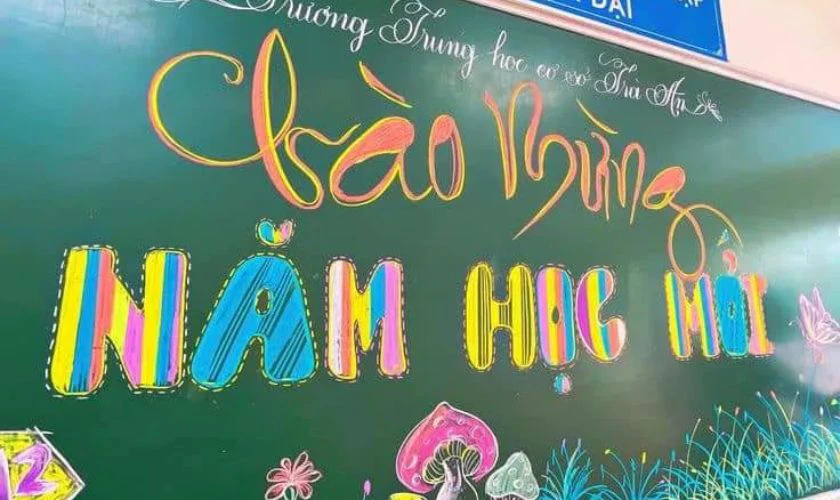 Trường Trung học cơ sở Trà An
Chào Mừng
NĂM HỌC MỚI
12